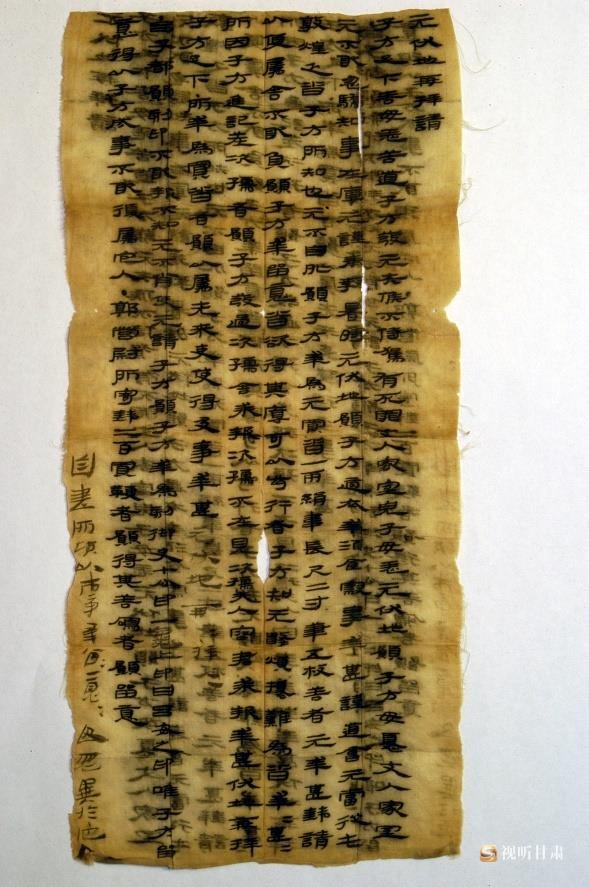 元伏地再拜請
子方足下善毋恙苦道子方發元失候不侍駕有死罪丈人家室兒子毋恙元伏地願子方毋憂丈人家室
元不敢忽驕知事在庫元謹奉教暑時元伏地願子方適衣幸酒食察事幸甚謹道會元當從屯
敦煌乏沓子方所知也元不自外願子方幸為元買沓一兩絹韋長尺二寸筆五枚善者元幸甚錢請
以便屬舍不敢負願子方幸留意沓欲得其厚可以步行者子方知元數煩擾難為沓幸甚幸甚
所因子方進記差次孺者願子方發過次孺舍求報次孺不在見次孺夫人容君求報幸甚伏地再拜
子方足下所幸為買沓者願以屬先來吏使得及事幸甚元伏地再拜再拜
呂子都願刻印不敢報不知元不肖使元請子方願子方幸為刻御史七分印一龜上印曰呂安之印唯子方留
意得以子方成事不敢復屬它人·郭營尉所寄錢二百買鞭者願得其善鳴者願留意
自書所願以市事幸留意留意毋忽異於它人
视听甘肃